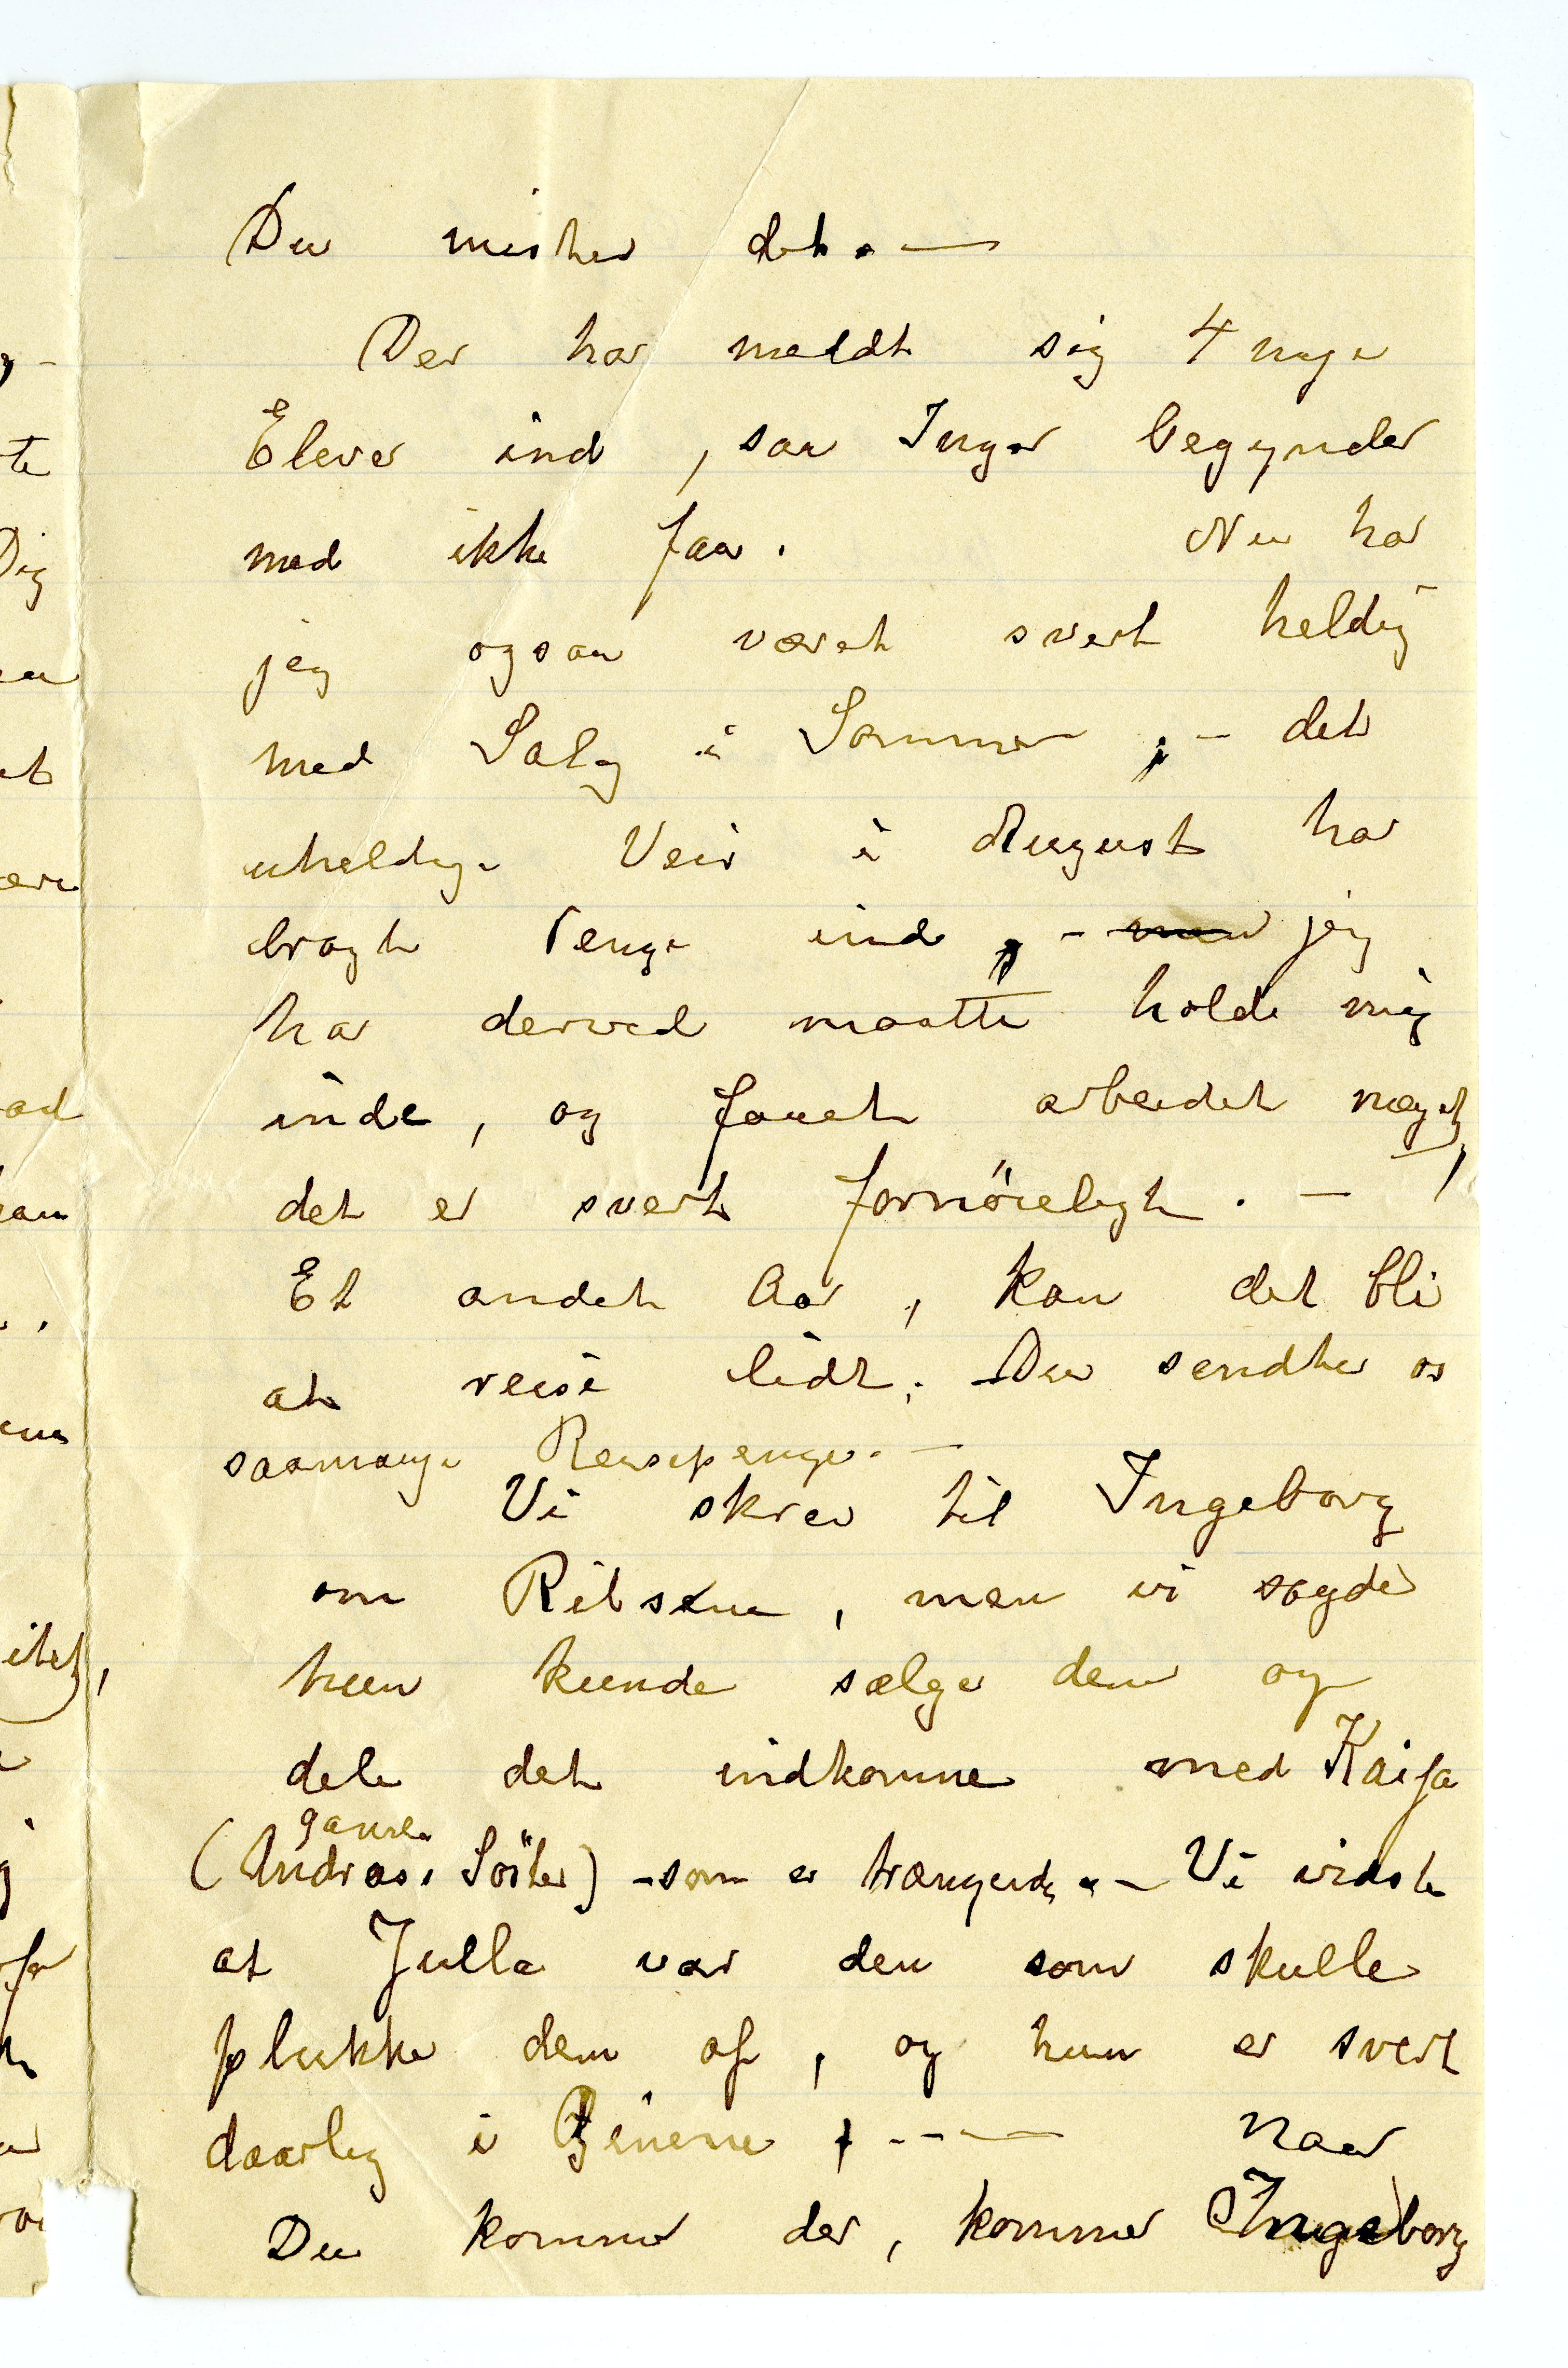 Du mister det. —
Der har meldt sig 4 nye
Elever ind, saa Inger begynder
med ikke faa. Nu har
jeg ogsaa været svert heldig
med Salg i Sommer, - det
uheldige Veir i August har
bragt Penge ind, - men jeg
har derved maatte holde mig
inde, og faaet arbeidet meget,
det er svert fornöieligt. —
Et andet Aar, kan det bli
at reise lidt. - Du sendte os
saamange Reisepenge. —
Vi skrev til Ingeborg
om Ribsene, men vi sagde
hun kunde sælge dem og
dele det indkomne med Kaisa
gamle
(Andreas's Söster) - som er trængende. - Vi vidste
at Julla var den som skulle
plukke dem af, og hun er svert
daarlig i Benene, - - — Naar
Du kommer der, kommer Ingeborg
te
Dig
et
ad